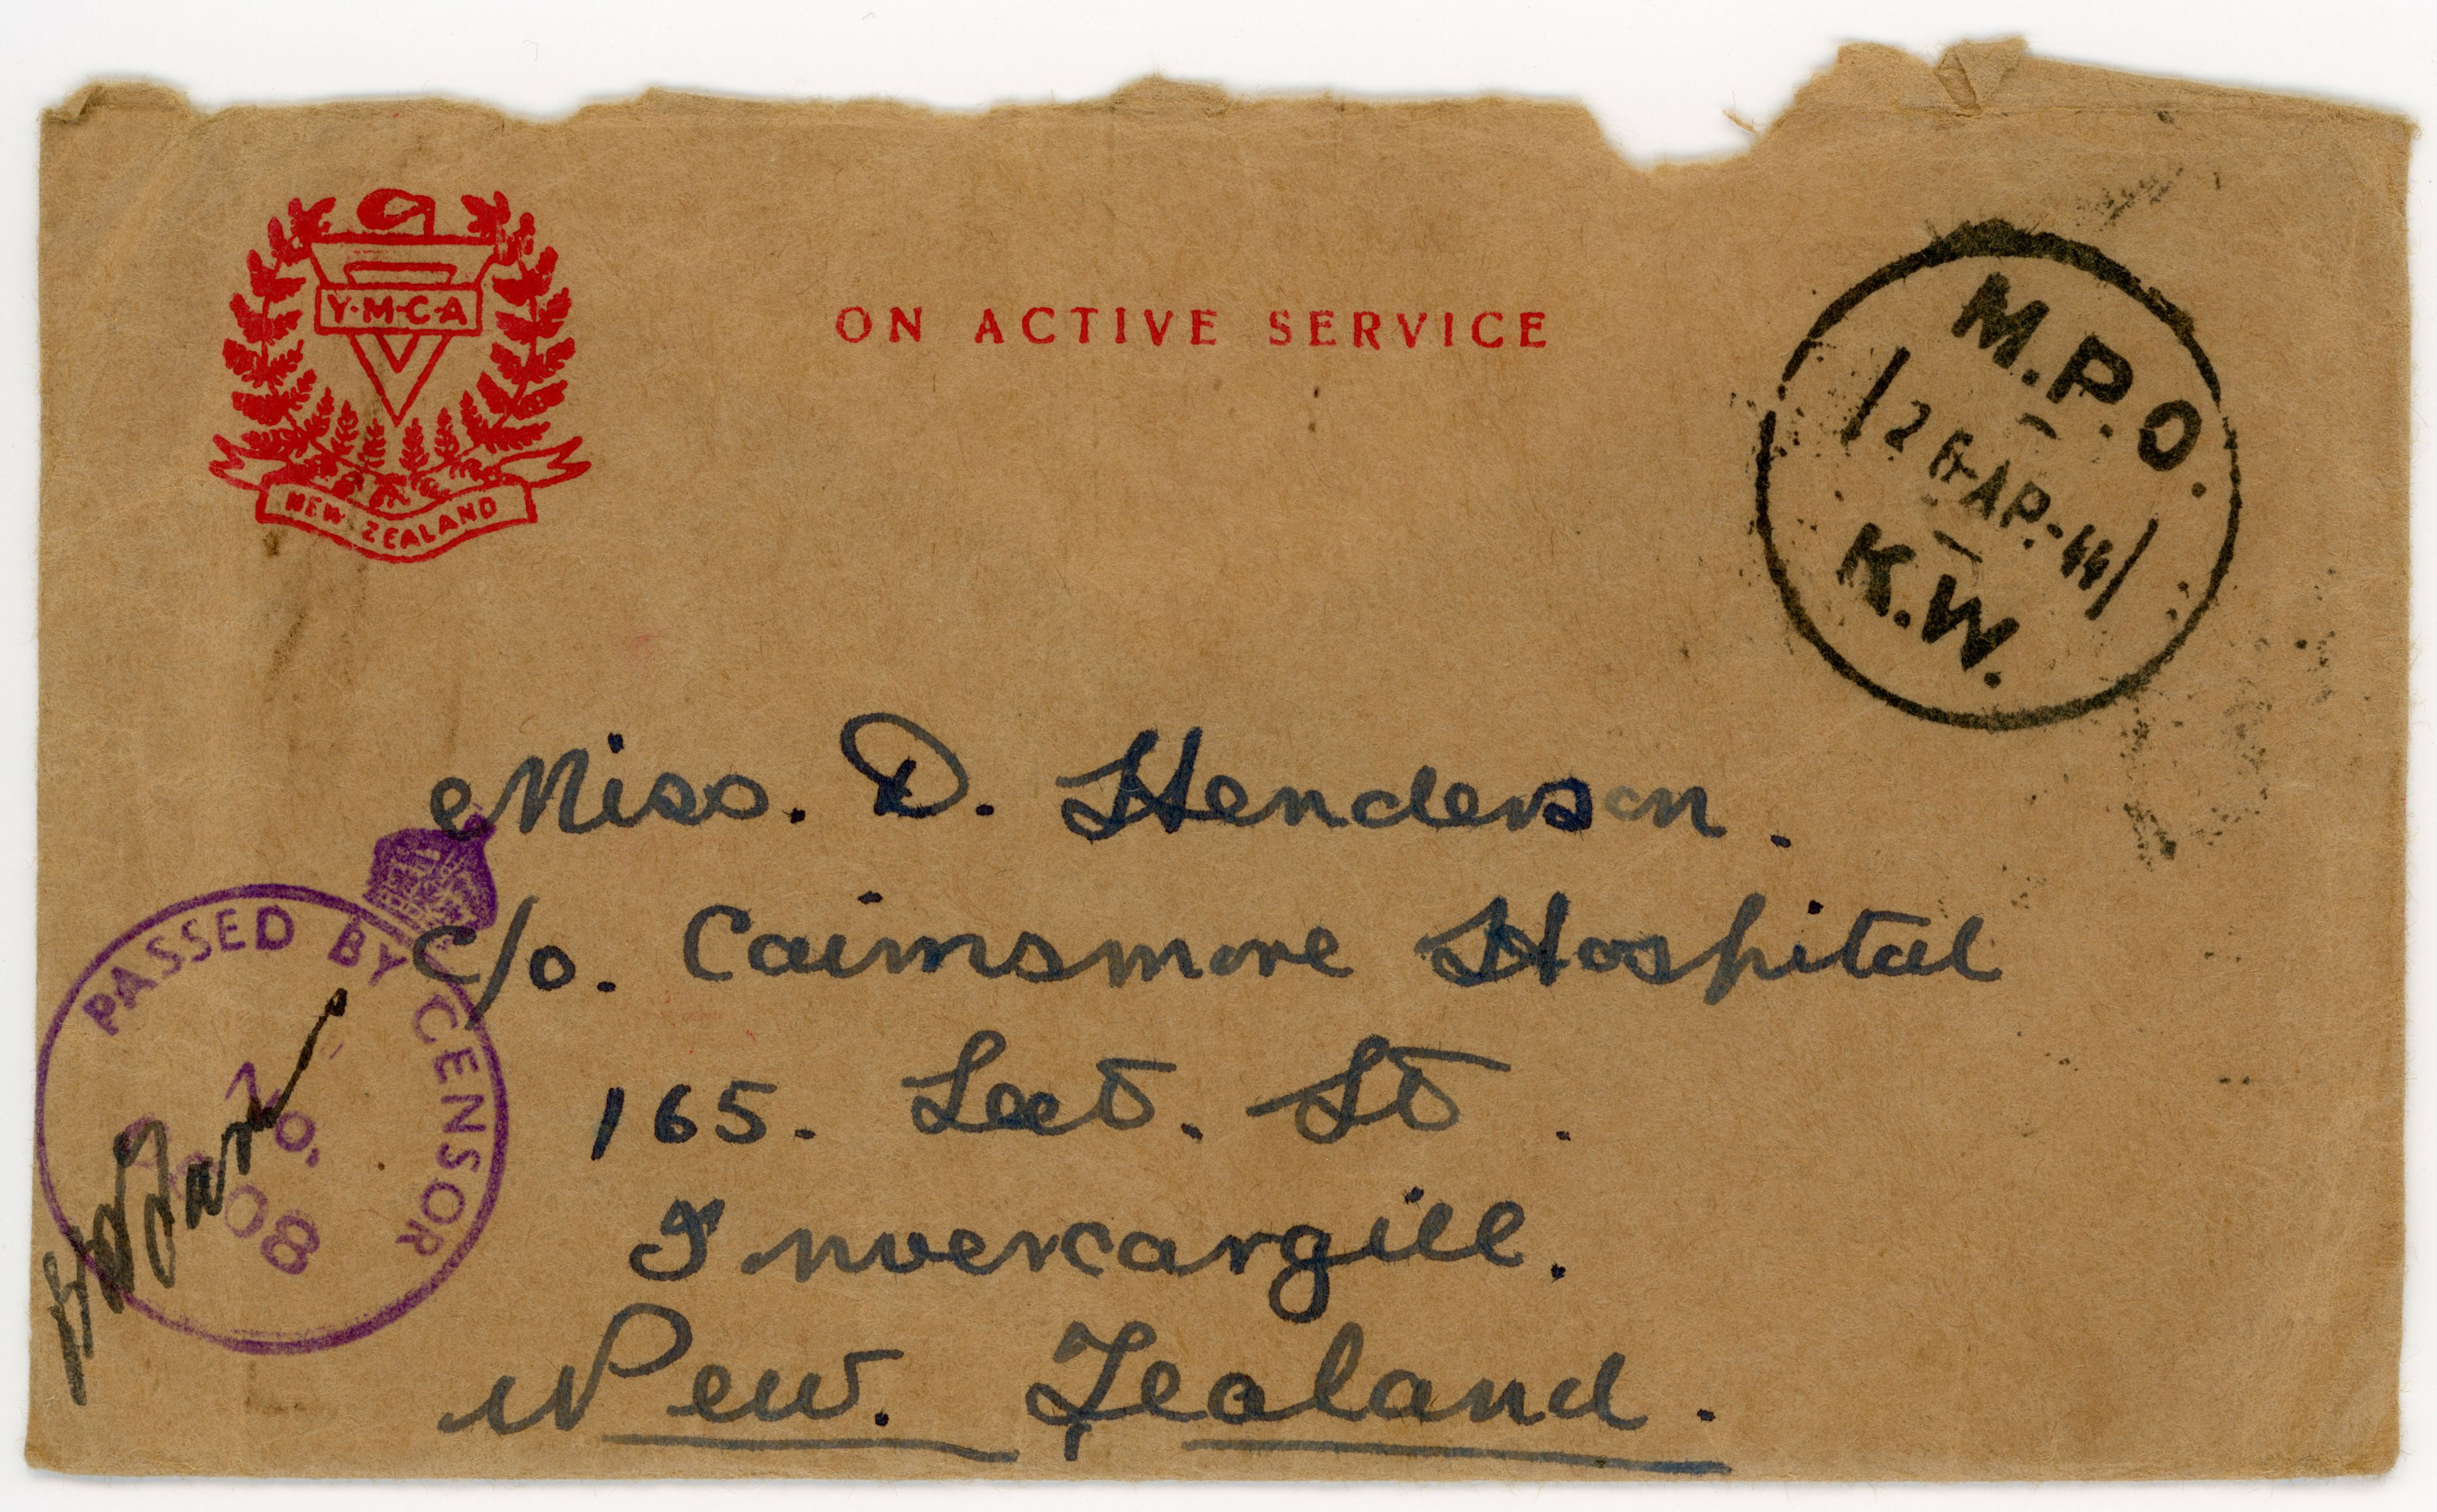 Y·M·C·A
NEW ZEALAND
ON ACTIVE SERVICE
M.P.O.
26 AP.-44
K.W.
Miss. D. Henderson.
c/o. Cairnsmore Hospital
165. Leet. St.
Invercargill.
New. Zealand.
PASSED BY CENSOR
No.